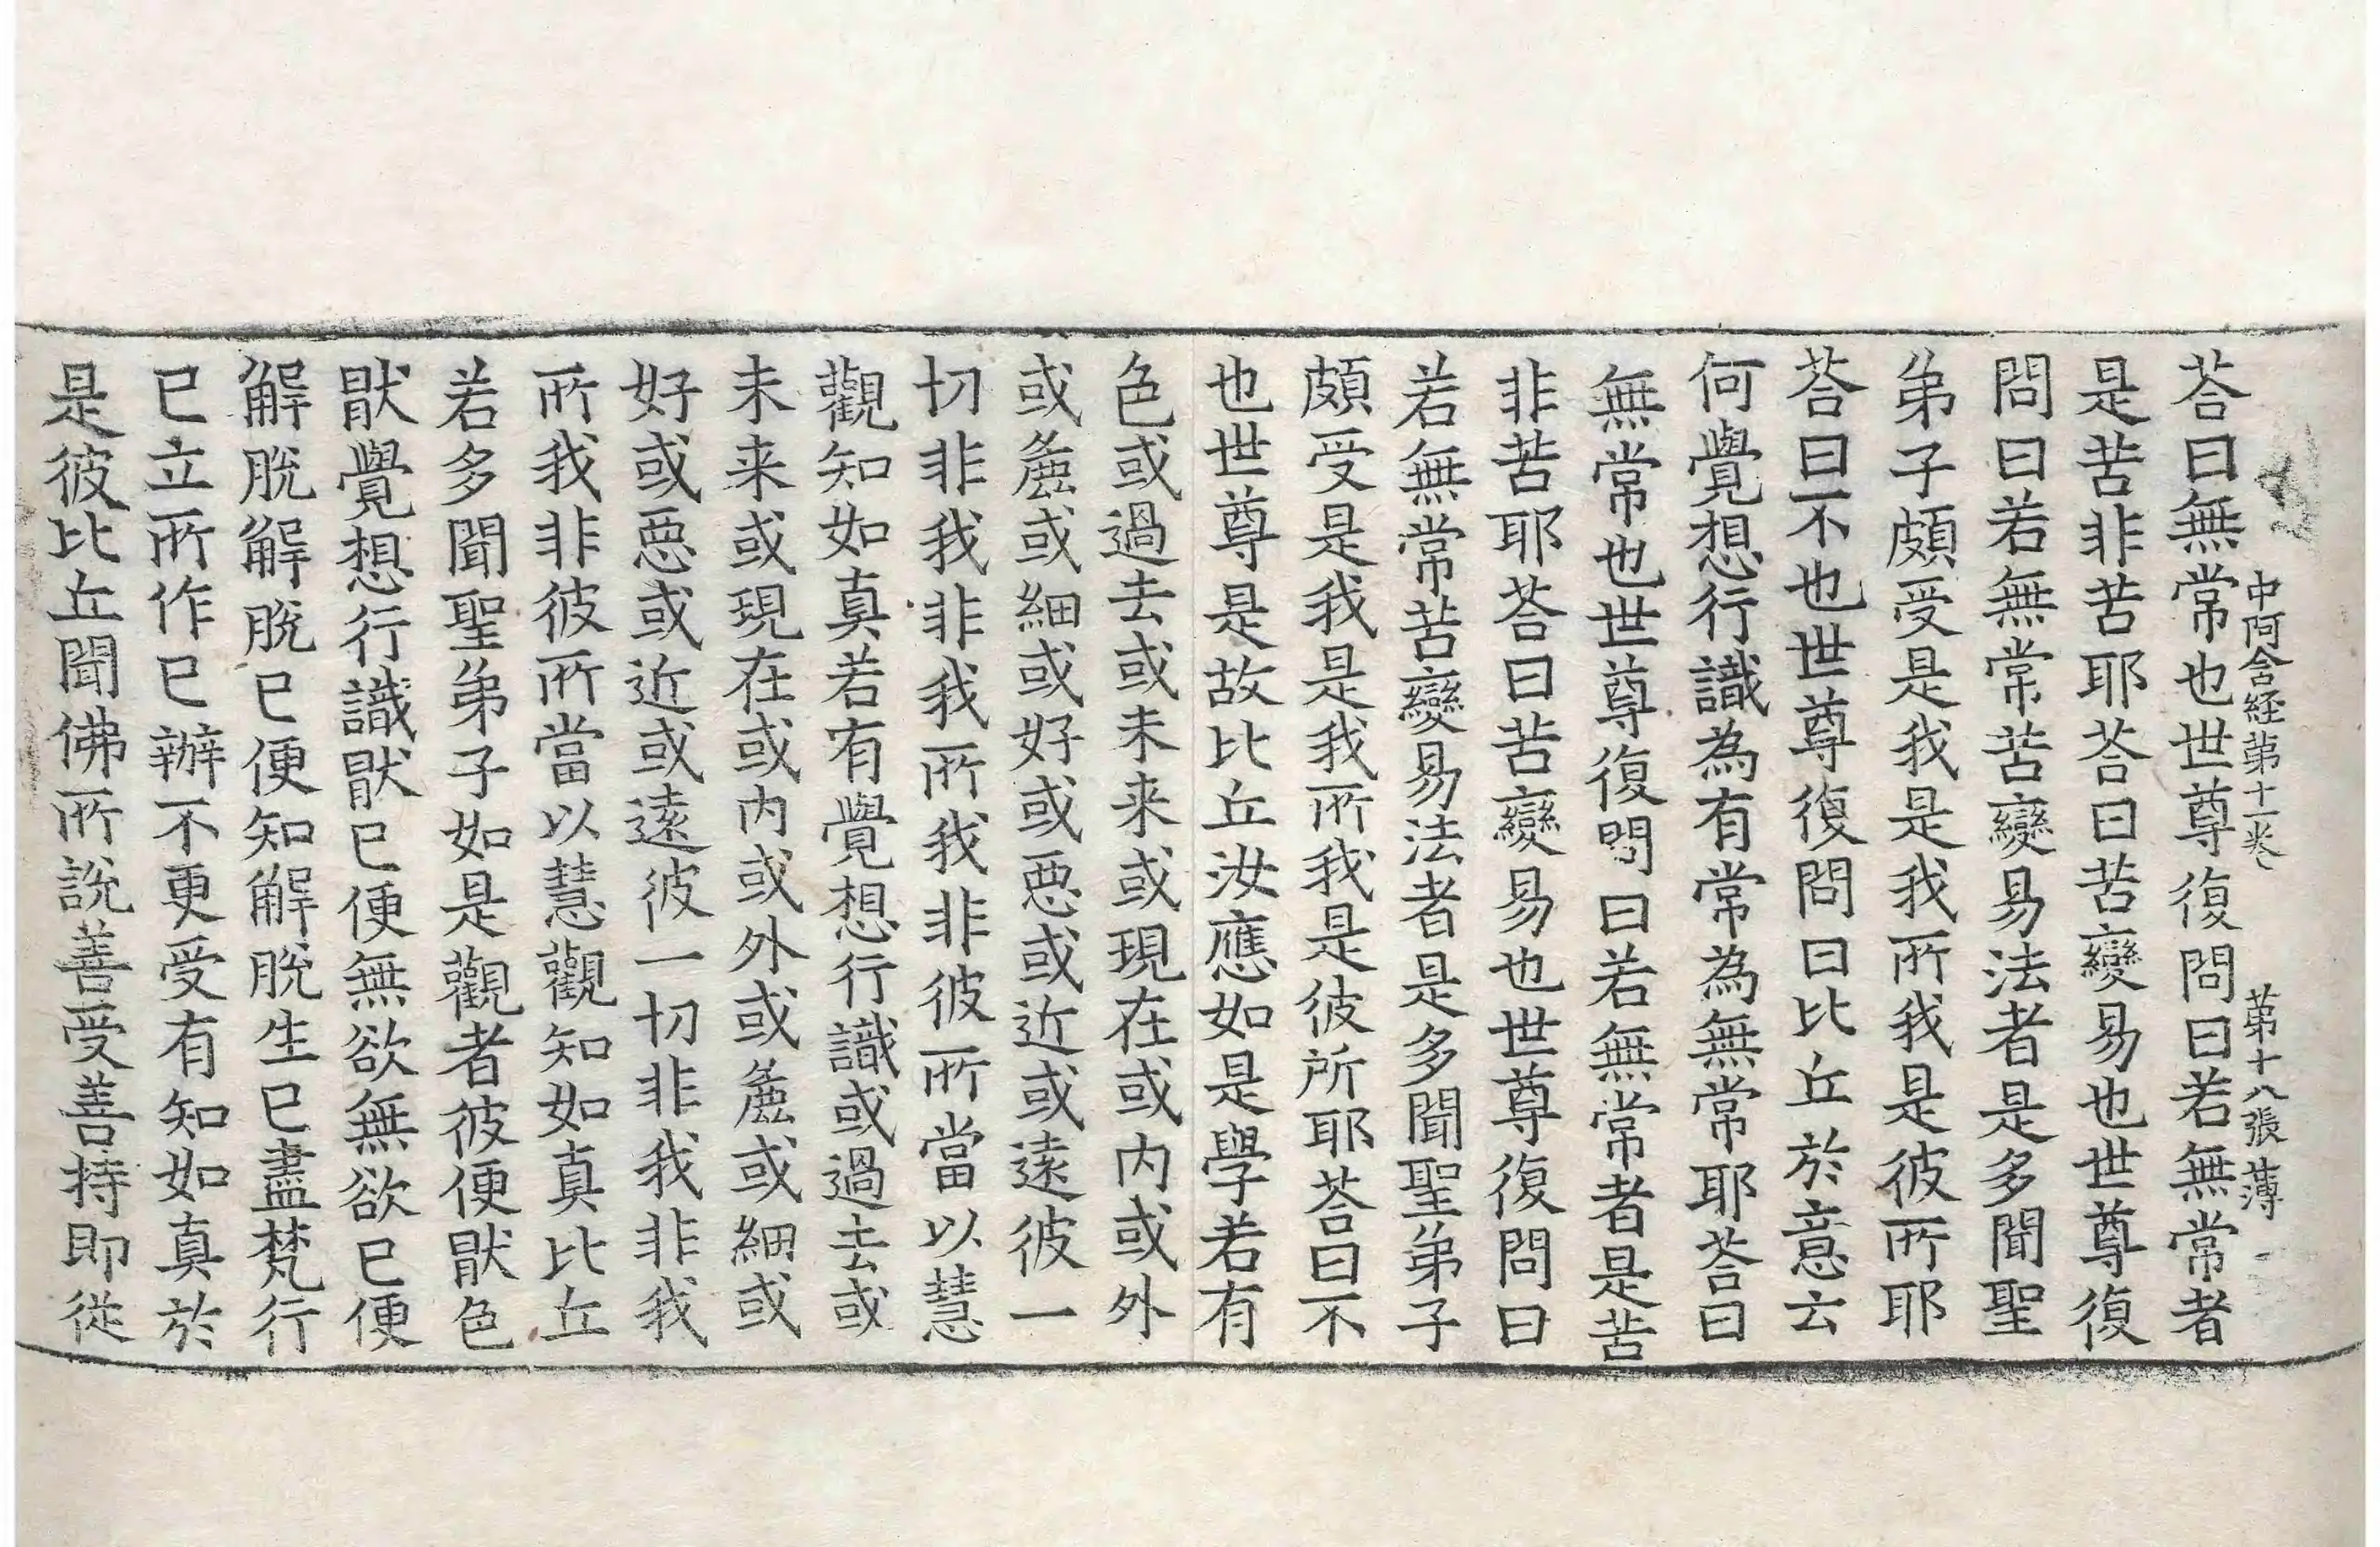 中阿含経苐十一卷 苐十八張 薄
荅曰無常也世尊復問曰若無常者
是苦非苦耶荅曰苦變易也世尊復
問曰若無常苦變易法者是多聞聖
弟子頗受是我是我所我是彼所耶
荅曰不也世尊復問曰比丘於意云
何覺想行識為有常為無常耶荅曰
無常也世尊復問曰若無常者是苦
非苦耶荅曰苦變易也世尊復問曰
若無常苦變易法者是多聞聖弟子
頗受是我是我所我是彼所耶荅曰不
也世尊是故比丘汝應如是學若有
色或過去或未来或現在或内或外
或麁或細或好或惡或近或遠彼一
切非我非我所我非彼所當以慧
觀知如真若有覺想行識或過去或
未来或現在或内或外或麁或細或
好或惡或近或遠彼一切非我非我
所我非彼所當以慧觀知如真比丘
若多聞聖弟子如是觀者彼便猒色
猒覺想行識猒已便無欲無欲已便
解脫解脫已便知解脫生已盡梵行
已立所作已辦不更受有知如真於
是彼比丘聞佛所說善受善持即從